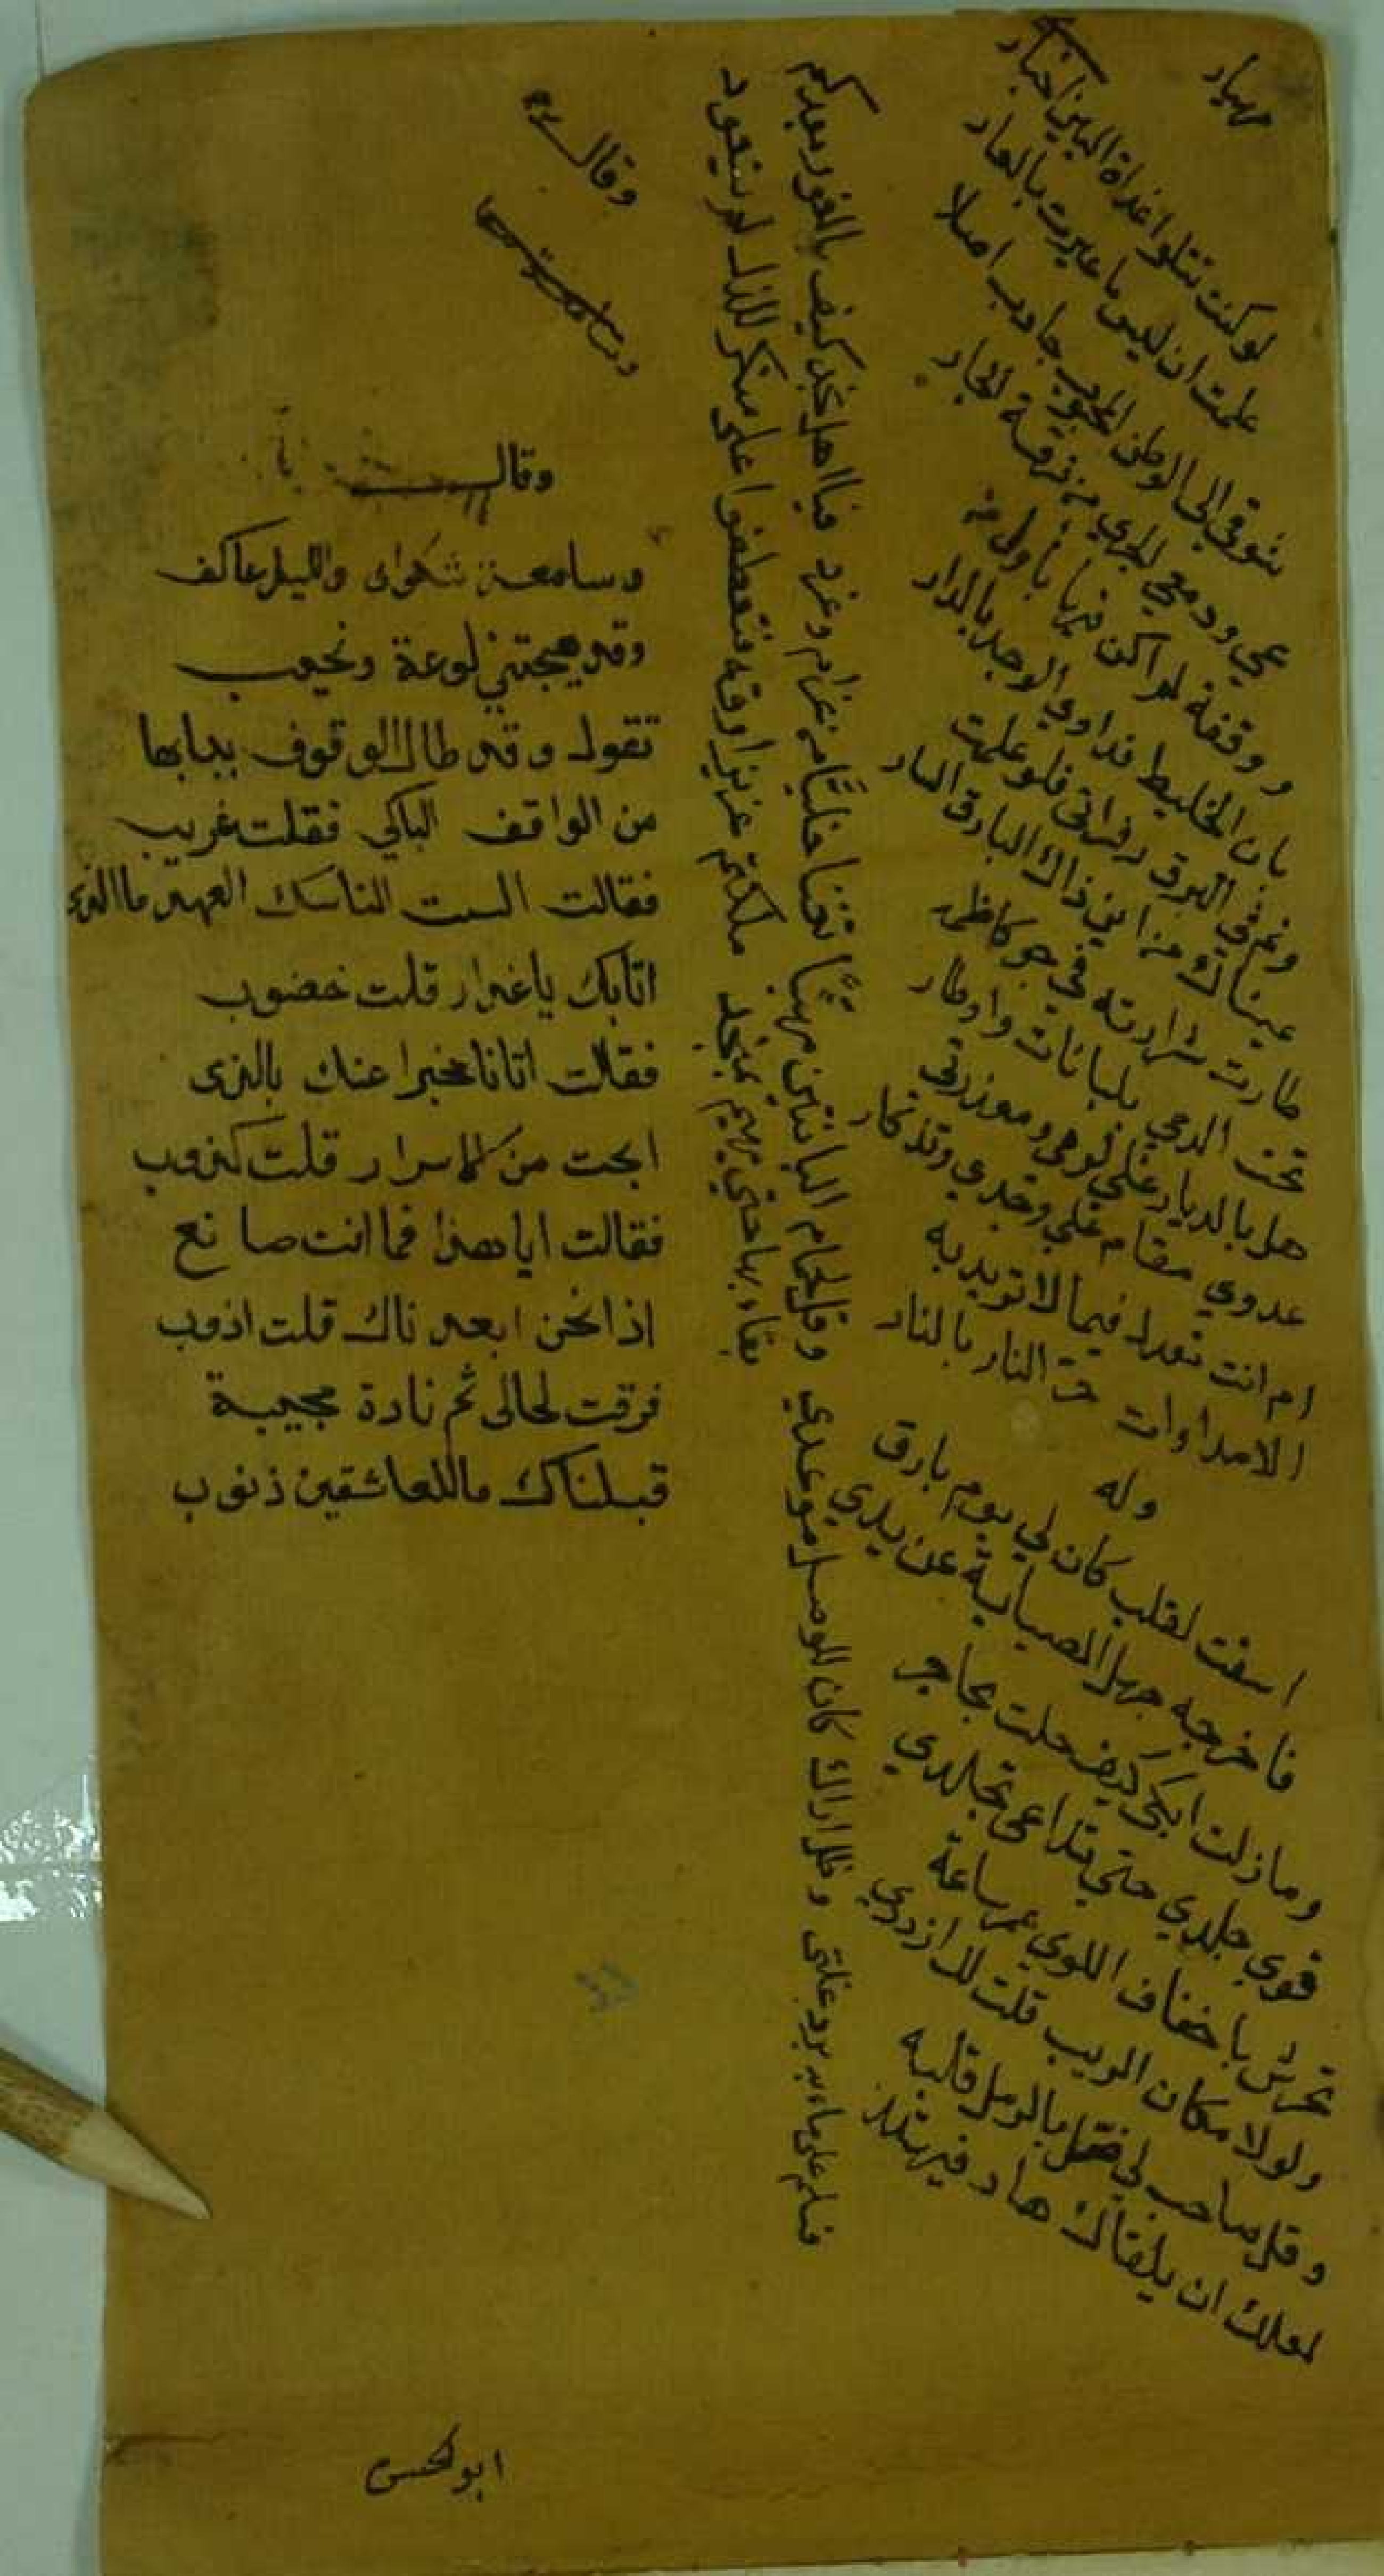 مهيار
لو كنت تتلوا غداة البين اخباري
علمت ان ليس ما عيرت بالعار
شوقي الى الوطن المحبوب جاذب اضلا
عي ودمعي لجري من فرقة الجار
ووقفة لم اكن فيها باول من
بان الخليط فداوي الوجد بالدار
ونم في البرق زفراتي فلو علمت
عيناك من اين ذاك البارق السار
طارت شرارته في جو كاظمة
تحت الدجي بلبانات واوطار
هل بالديار علي لومي ومعذرتي
عدوي مقام علي وجدي وتذكار
ام انت تعذل فيما لا تريد به
الا مداوات حر النار بالنار
وله
اسفت لقلب كان لي يوم بارق
فاخرجه جهل الصبابة عن يدي
وما زلت ابكي كيف حلت بحاجر
قوي جلدي حتي تداعى تجلدي
تحرش باحقاف اللوي عمر ساعة
ولولا مكان الريب قلت لك ازددي
وقل صاحب لي ضل بالرمل قلبه
لعلك ان يلقاك هاد فيهتدي
فسلم علي ماء به برد غلتي وظل اراك كان للوصل موعدي
وقل لحمام البانتين مهنئا تغنا خليا من غرام وغرد
فيا اهل نجد كيف بالغور بعدكم
بقاء تهامي يهيم بمنجد
ملكتم عزيزا رقه فتعطفوا علي منكر للذل لم يتعود
وقال
وقال
وسامعة شكواى والليل عاكف
وقد هيجتني لوعة ونحيب
تقول وقد طال الوقوف ببابها
من الواقف الباكي فقلت غريب
فقالت الست الناسك العهد ما الذى
اتا بك يا غدار قلت خضوب
فقالت اتانا مخبرا عنك بالذى
ابحت من الاسرار قلت كذوب
فقالت ايا هذا فما انت صانع
اذا نحن ابعدناك قلت اذوب
فرقت لحالى ثم نادة مجيبة
قبلناك ما للعاشقين ذنوب
ابو الحسن